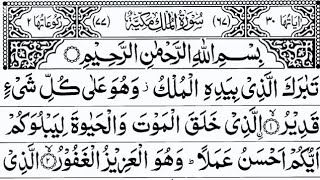 اٰیَاتُهَا ٣٠ (٦٧) سُوْرَةُ الْمُلْكِ مَكِّيَّةٌ (٧٧) رُكُوْعَاتُهَا ٢
بِسْمِ اللّٰهِ الرَّحْمٰنِ الرَّحِيْمِ
تَبٰرَكَ الَّذِيْ بِيَدِهِ الْمُلْكُ ز وَهُوَ عَلٰى كُلِّ شَيْءٍ
قَدِيْرُ ۨ ۙ﴿١﴾ الَّذِيْ خَلَقَ الْمَوْتَ وَالْحَيٰوةَ لِيَبْلُوَكُمْ
اَيُّكُمْ اَحْسَنُ عَمَلًا ؕ وَهُوَ الْعَزِيْزُ الْغَفُوْرُ ۙ﴿٢﴾ الَّذِيْ